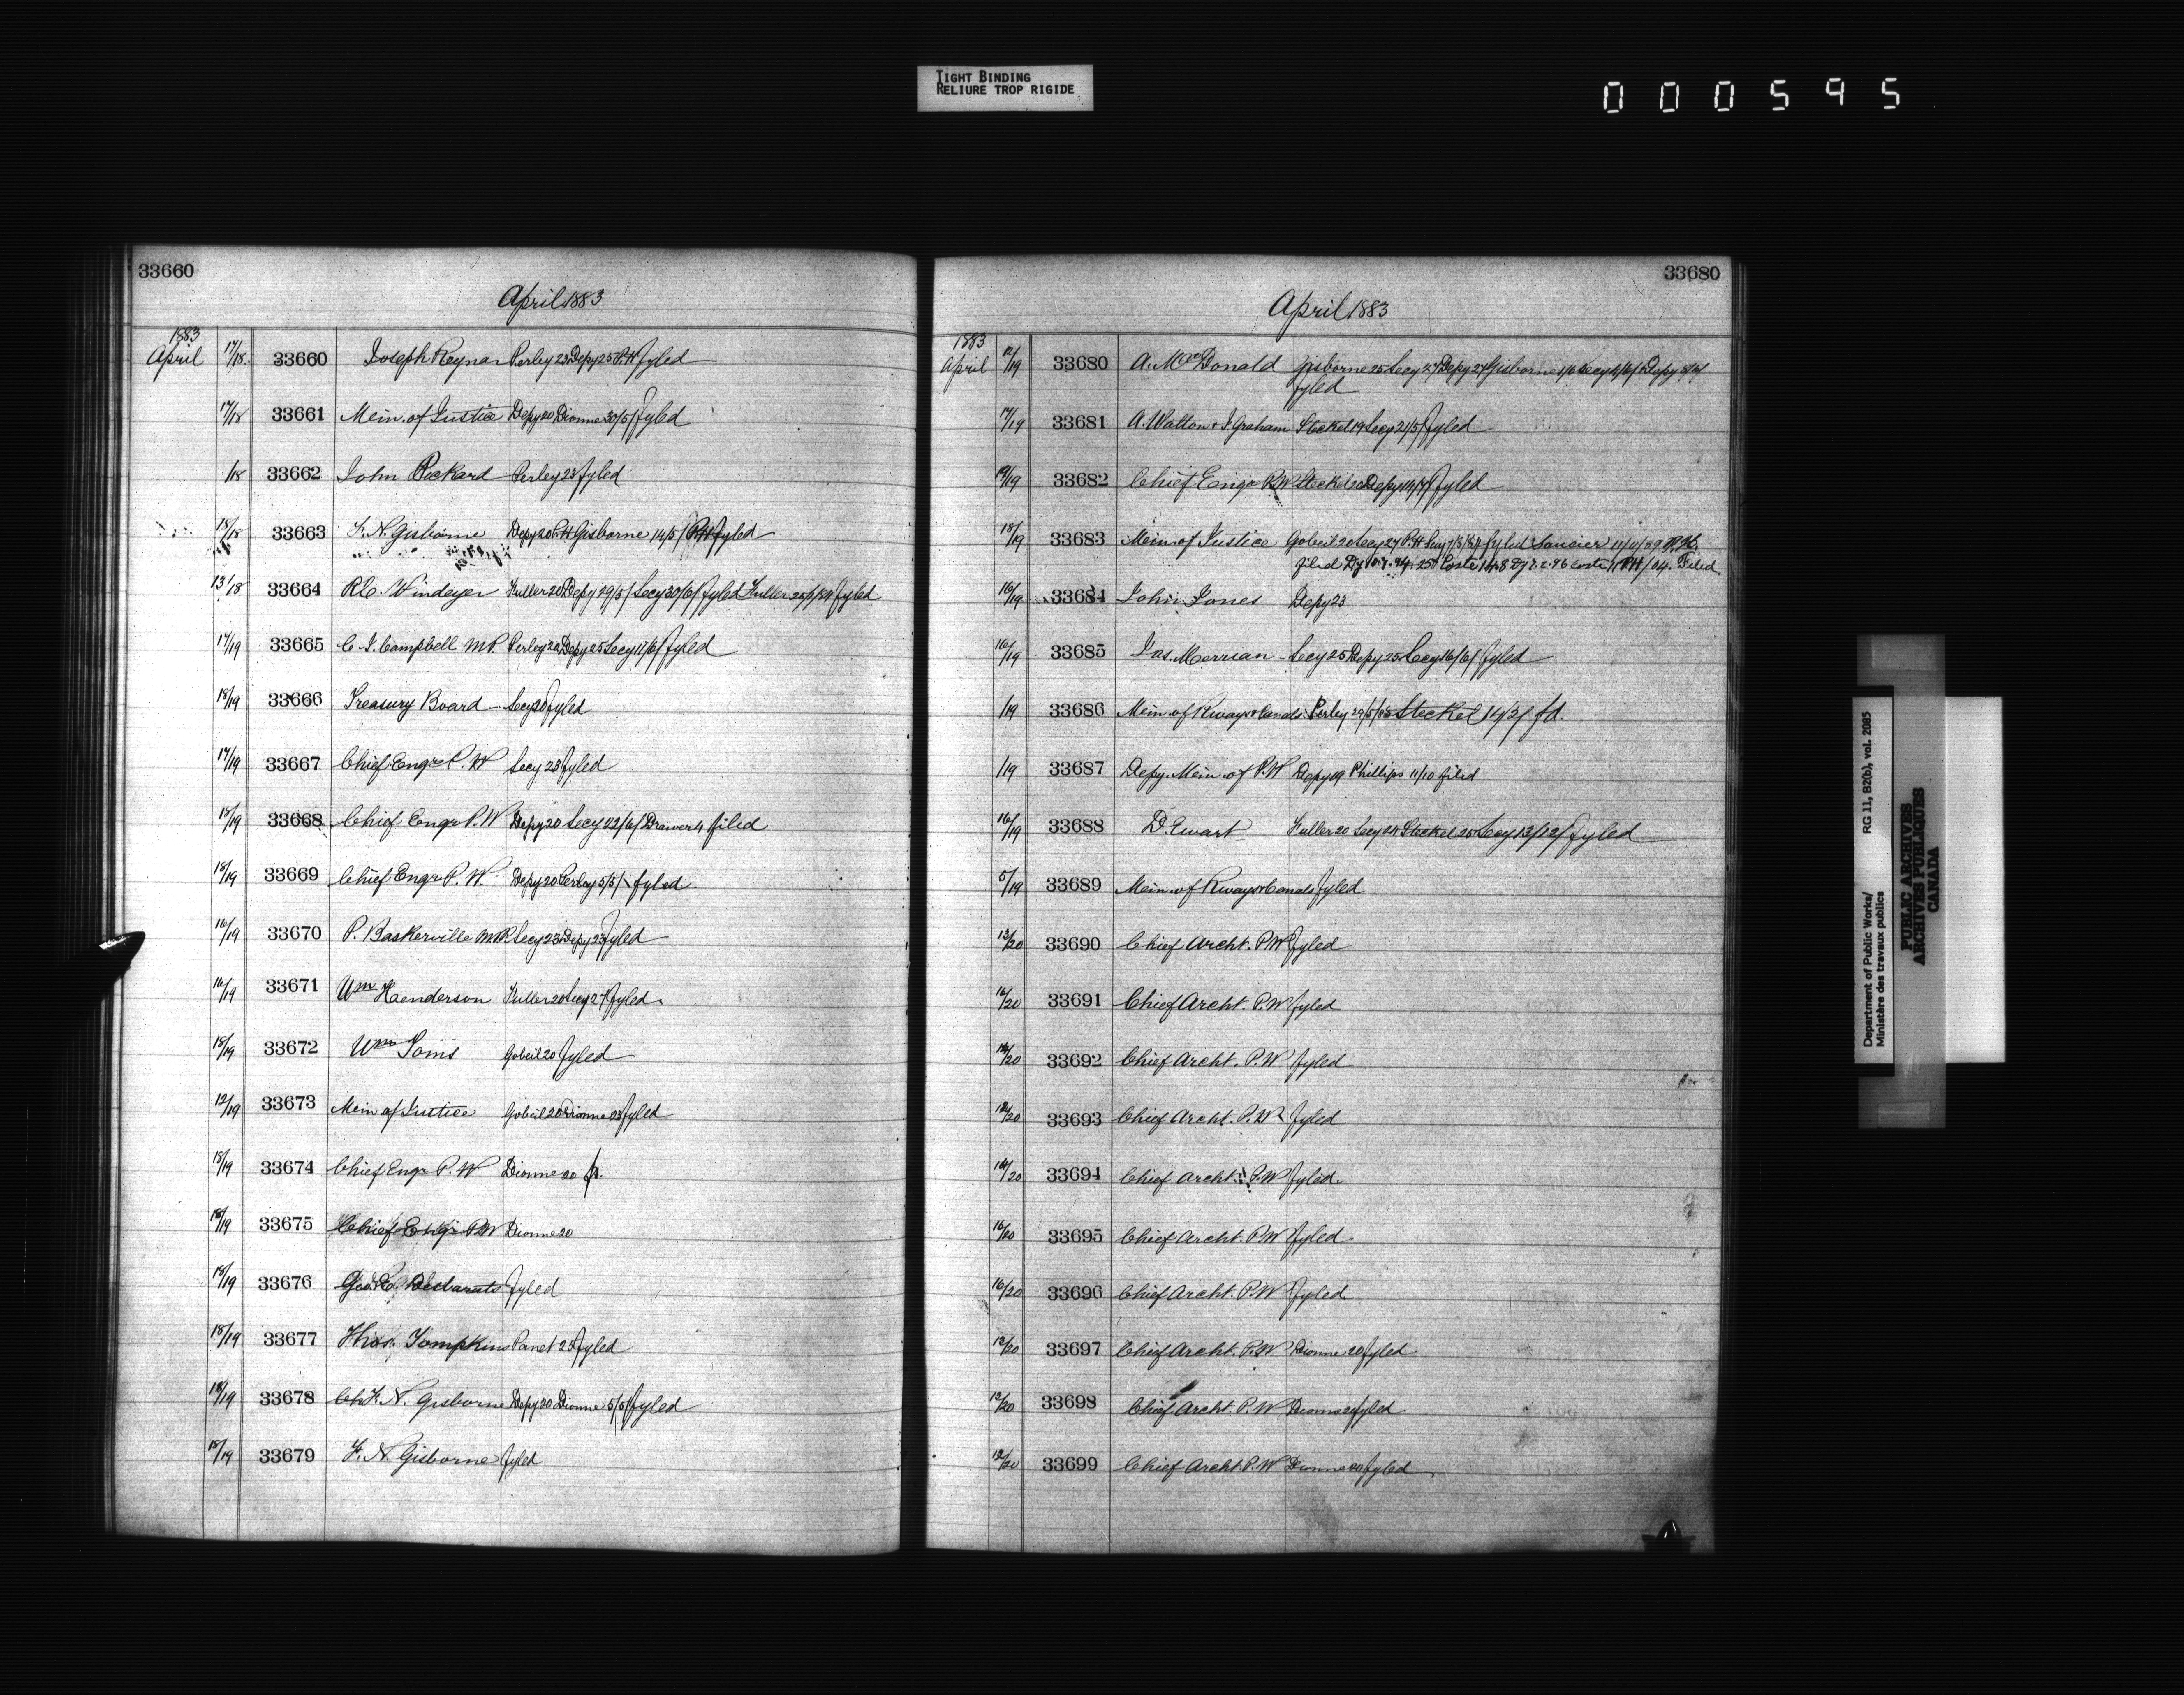 TIGHT BINDING
RELIURE TROP RIGIDE
000595
33660
April 1883
1883
April 17/18 33660 Joseph Reynar Perley 23 Depy 25 P.H fyled
17/18 33661 Mein. of Justice Depy 20 Dionne 30/5/ fyled
/18 33662 John Rickard Perley 23 fyled
18/18 33663 F. N. Gisborne Depy 20 P.H Gisborne 14/5/ P.H fyled
13/18 33664 R.C. Windeyer Fuller 20 Depy 29/5/ Secy 30/6/ fyled Fuller fyled
17/19 33665 C. J. Campbell M.P. Perley 20 Depy 25 Secy 11/6/ fyled
18/19 33666 Treasury Board Secy 20 fyled
17/19 33667 Chief Engr P. W Secy 23 fyled
18/19 33668 Chief Engr P. W Depy 20 Secy 22/6/ Drawer 4 filed
18/19 33669 Chief Engr P. W. Depy 20 Perley 5/5/ fyled.
16/19 33670 P. Baskerville M.P. Secy 23 Depy 23 fyled
16/19 33671 Wm Henderson Fuller 20 Secy 27 fyled.
18/19 33672 Wm Goins Gobeil 20 fyled
12/19 33673 Mein of Justice Gobeil 20 Dionne 23 fyled
18/19 33674 Chief Engr P. W Dionne 20
18/19 33675 Chief Engr P.W Dionne 20
18/19 33676 Geo. Desbarats fyled
18/19 33677 Thos. Tompkins Panet 23 fyled
18/19 33678 F. N. Gisborne Depy 20 Dionne 5/5/ fyled
18/19 33679 F. N. Gisborne fyled
33680
April 1883
1883
April 12/19 33680 A. McDonald Gisborne 25 Secy 27 Depy 27 Gisborne 1/6 Secy 4/6/ Depy 5/6/
fyled
17/19 33681 A. Walton & J. Graham Steckel 19 Secy 21/5/ fyled
19/19 33682 Chief Engr P.W Steckel 20 Depy fyled
18/19 33683 Mein of Justice Gobeil 20 Secy 27 P.H fyled Saucier 11/11/89 P.H.
filed Coste Coste P.H/04. Filed.
16/19 33684 John Jones Depy 23
16/19 33685 Jas. Merrian Secy 25 Depy 25 Secy 16/6/ fyled
/19 33686 Mein of Rways & Canals Perley 29/5/85 Steckel 14/3/ fd.
/19 33687 Depy Mein of P.W Depy 19 Phillips 11/10 filed
16/19 33688 D. Ewart Fuller 20 Secy 24 Steckel 25 Secy 13/12/ fyled
5/19 33689 Mein of Rways & Canals fyled
13/20 33690 Chief Archt. P.W fyled
16/20 33691 Chief Archt. P.W fyled
14/20 33692 Chief Archt. P.W fyled
12/20 33693 Chief Archt. P.W fyled
14/20 33694 Chief Archt. P.W fyled.
16/20 33695 Chief Archt. P.W fyled.
16/20 33696 Chief Archt. P.W fyled.
12/20 33697 Chief Archt. P.W Dionne 20 fyled.
12/20 33698 Chief Archt. P.W Dionne 20 fyled.
12/20 33699 Chief Archt. P.W Dionne 20 fyled
Department of Public Works/ RG 11, B2(b), vol. 2085
Ministère des travaux publics
PUBLIC ARCHIVES
ARCHIVES PUBLIQUES
CANADA